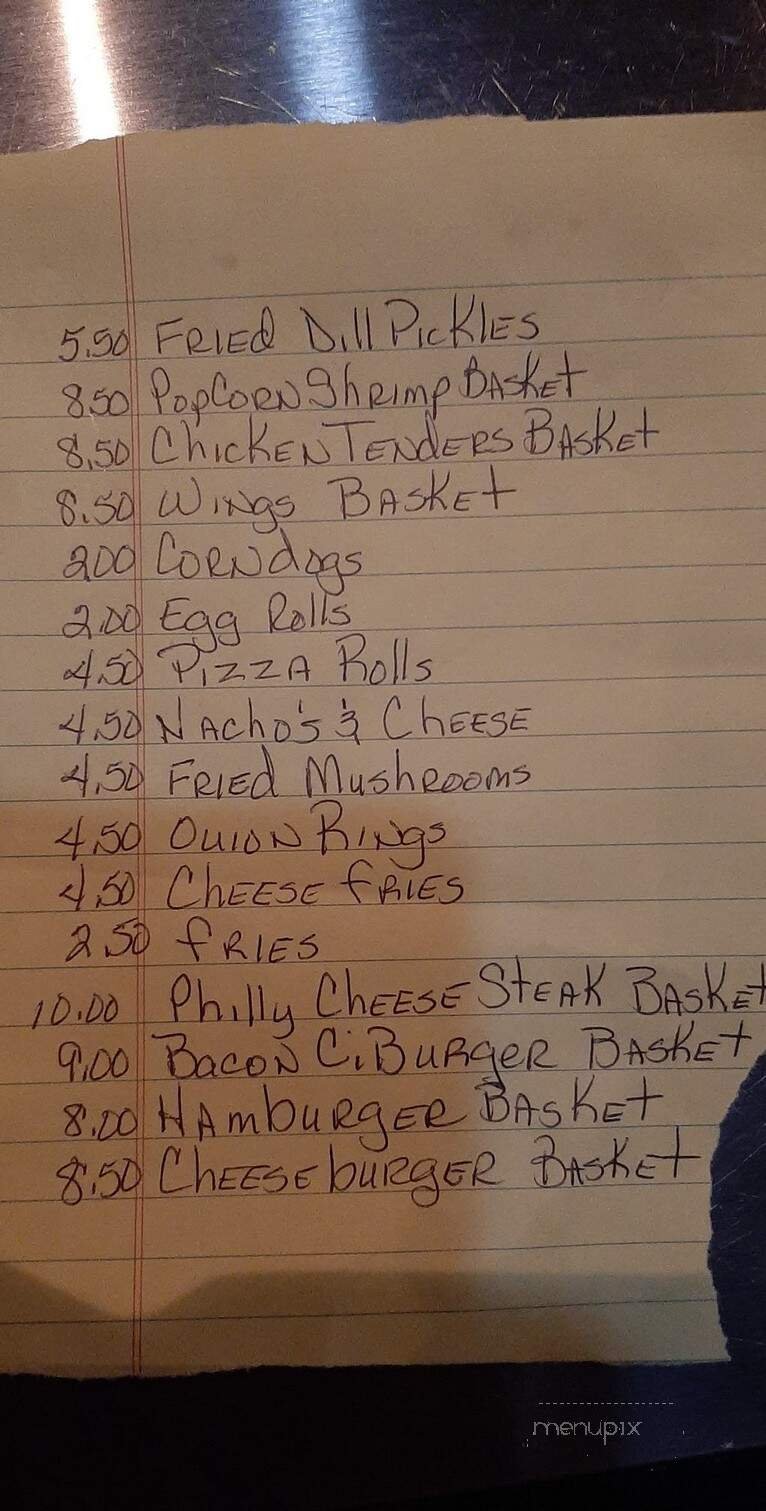 5.50 Fried Dill Pickles
8.50 Popcorn Shrimp Basket
8.50 Chicken Tenders Basket
8.50 Wings Basket
200 Corndogs
2.00 Egg Rolls
4.50 Pizza Rolls
4.50 Nacho's & Cheese
4.50 Fried Mushrooms
4.50 Onion Rings
4.50 Cheese fries
2.50 fries
10.00 Philly Cheese Steak Basket
9.00 Bacon C. Burger Basket
8.00 Hamburger Basket
8.50 Cheeseburger Basket
menupix